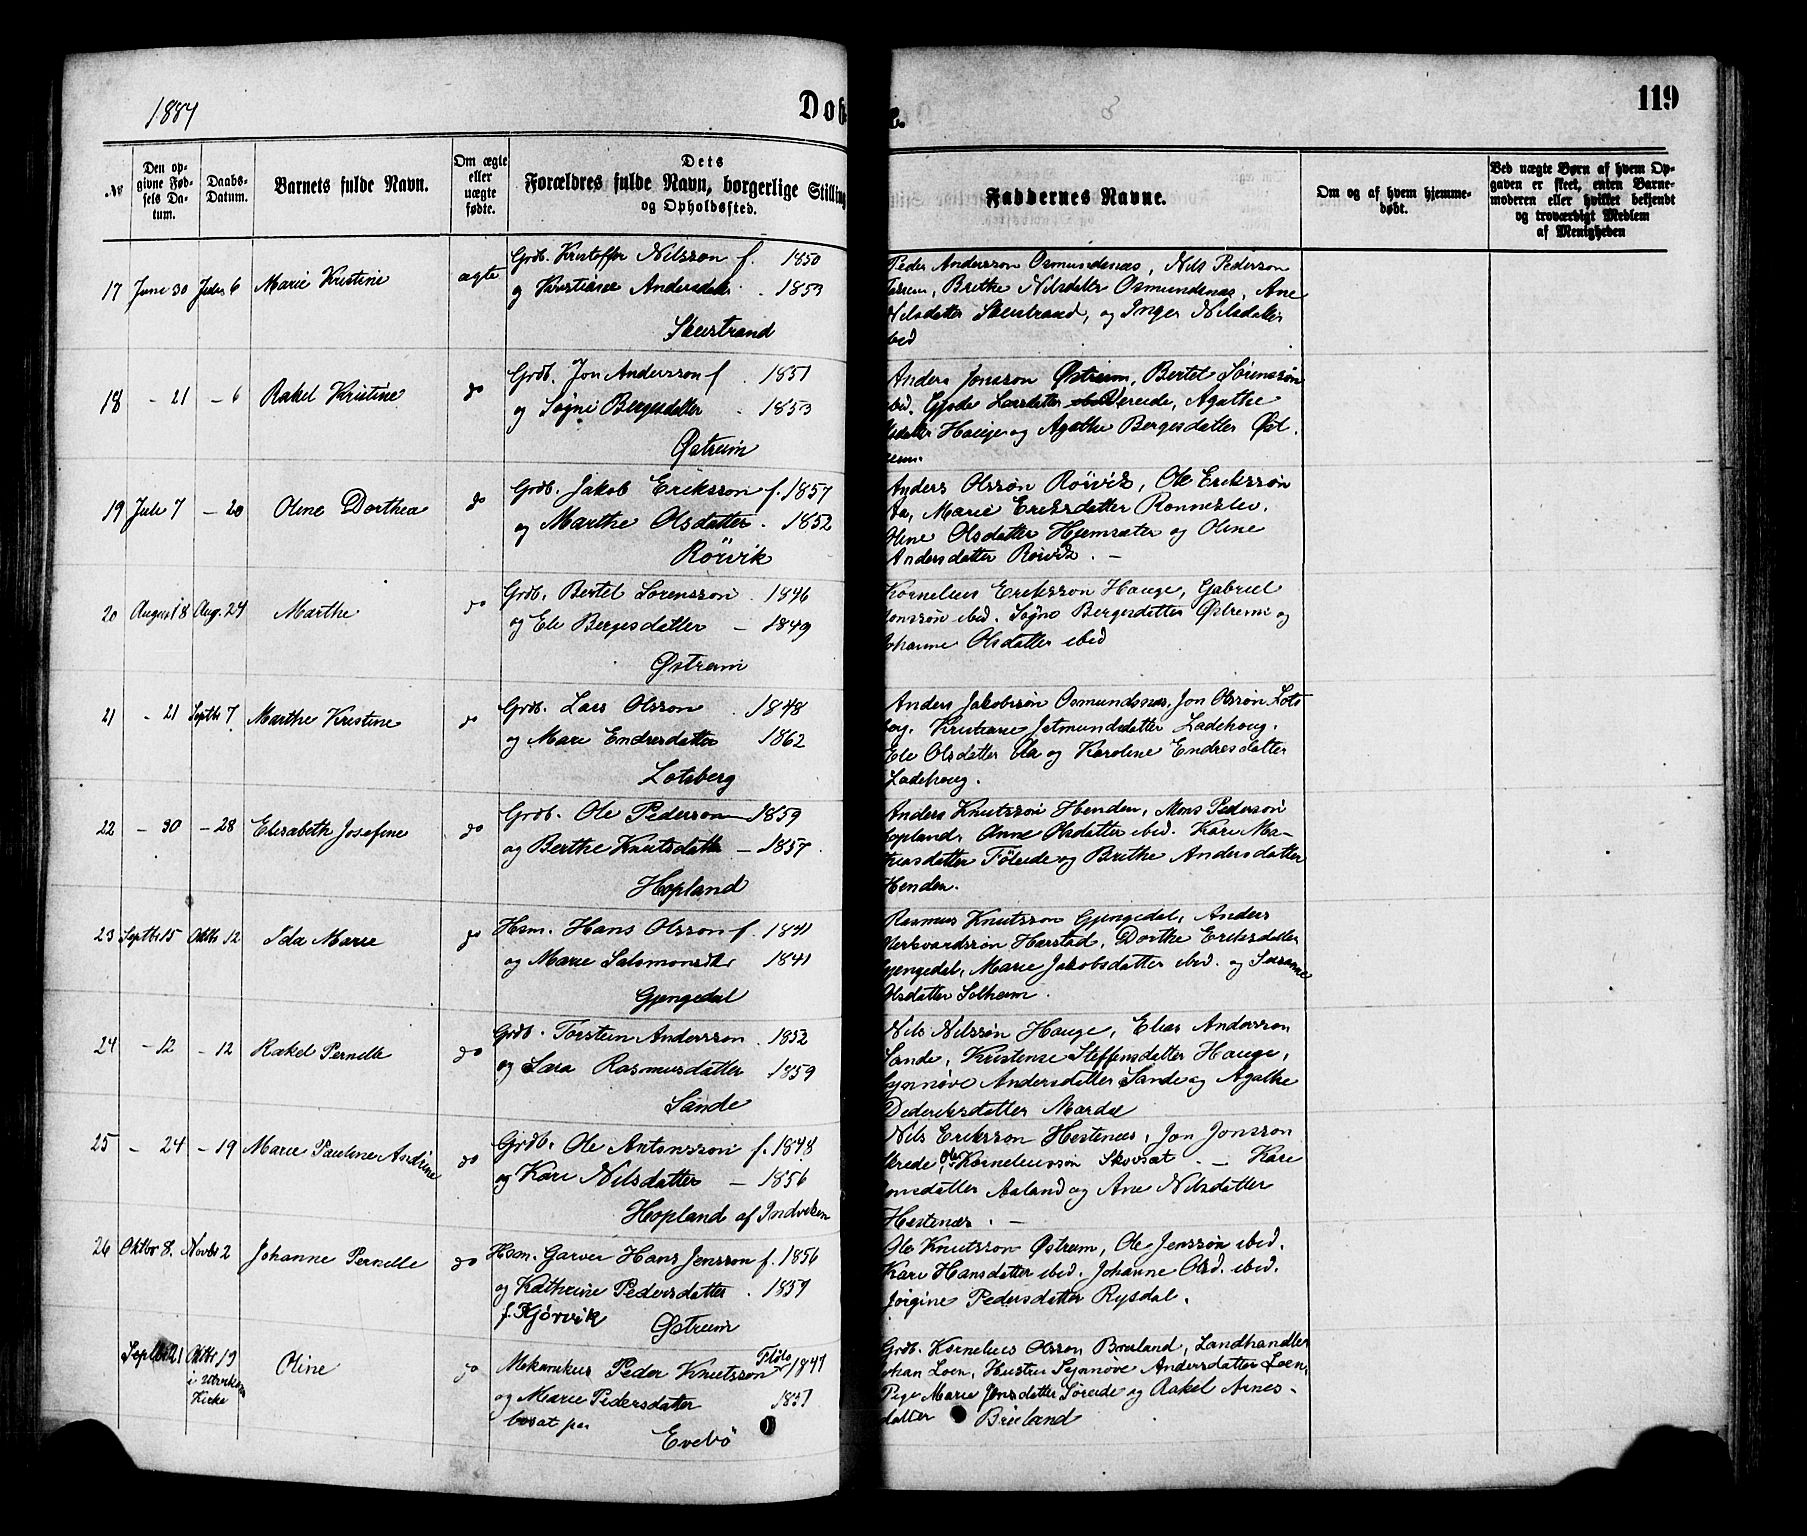 1884
Døb
e.
119
No
Den op-
givne Fød-
sels Da-
tum.
Daabs-
Datum.
Barnets fulde Navn.
Om ægte
eller
uægte
fødte.
Dets
Forældres fulde Navn, borgerlige Stilling
og Opholdssted.
Faddernes Navne.
Om og af hvem hjemme-
døbt.
Ved uægte Børn af hvem Op-
gaven er skeet, enten Barne-
moderen eller hvilket bekjendt
og troværdigt Medlem
af Menigheden
17 Juni 30 6 Marie Kristine ægte
Grdb. Kristoffer Nilsson f. 1850
og Kristiane Andersdatter . 1853
Skeistrand
Peder Andersson Osmundsnæs, Nils Pederson
Brithe Nilsdatter Osmundsnæs, Ane
Nilsdatter Skeistrand, og Inger Nilsdatter
ibid
18 - 21 - 6 Rakel Kristine do
Grdb. Jon Andersson f. 1851
og Søgni Bergesdatter . 1853
Østreim
Anders Jonsson Østreim, Bertel Sørensson
ibid. Gjøde Larsdatter Vereide, Agathe
Hauge og Agathe Bergesdatter Øst-
reim.
19 Juli 7 - 20 Oline Dorthea do
Grdb. Jakob Eriksson f. 1857
og Marthe Olsdatter . 1852
Røivik
Anders Olsson Røivik, Ole Eriksson
Aa, Marie Eriksdatter Ronneslev,
Oline Olsdatter Hjemsæter og Oline
Andersdatter Røivik. -
20 August 8 Aug. 24 Marthe do
Grdb. Bertel Sørensson . 1846
og Ele Bergesdatter - 1849
Østreim
Kornelius Eriksson Hauge, Gabriel
Jonsson ibid. Søgne Bergesdatter Østreim og
Johanne Olsdatter ibid
21 - 21 Septbr 7 Marthe Kristine do
Grdb. Lars Olsson . 1848
og Mari Endresdatter 1862
Lotsberg
Anders Jakobsson Osmundsnæs, Jon Olsson Lots-
berg. Kristiane Jetmundsdatter Ladehoug.
Ele Olsdatter Aa og Karoline Endresdatter
Ladehoug.
22 - 30 - 28 Elisabeth Josefine do
Grdb. Ole Pederson 1859
og Berthe Knutsdatter - 1857.
Hopland
Anders Knutsson Henden, Mons Pederson
Hopland, Anne Olsdatter ibid. Kari Ma-
thiasdatter Føleide og Brithe Andersdatter
Henden.
23 Septbr 15 Oktbr 12 Ida Marie do
Hsm. Hans Olsson f. 1841
og Marie Salomonsdtr 1841
Gjengedal
Rasmus Knutsson Gjengedal, Anders
Harstad, Dorthe Eriksdatter
Gjengedal, Marie Jakobsdatter ibid. og Susanne
Olsdatter Solheim.
24 - 12 - 12 Rakel Pernelle do
Grdb. Torstein Andersson . 1852
og Sara Rasmusdatter 1859
Sande
Nils Nilsson Hauge, Elias Andersson
Sande, Kristense Steffensdatter Hauge,
Synnøve Andersdatter Sande og Agathe
Dideriksdatter Mardal
25 - 24 - 19 Marie Pauline Andrine do
Grdb. Ole Antonsson f. 1848
og Kari Nilsdatter - 1856
Hopland af Indviken
Nils Eriksson Hestenæs, Jon Jonsson
Skrede, Ole Korneliusson Skovsæt - Kari
Jonsdatter Aaland og Ane Nilsdatter
Hestenæs. -
26 Oktbr 8. Novbr 2 Johanne Pernelle do
Hsm. Garver Hans Jensson f. 1856
og Kathrine Pedersdatter . 1857
f. Kjørvik
Østreim
Ole Knutsson Østreim, Ole Jensson ibid.
Kari Hansdatter ibid. Johanne Olsd. ibid.
Jørgine Pedersdatter Rysdal.
Septbr 21 Oktbr 19
i Utvikens
Kirke
Oline do
Mekanikus Peder Knutsson 1847
og Marie Pedersdatter 1857
bosat paa
Evebø
Grdb. Kornelius Olsson Bræland, Landhandler
Johan Loen, Hustru Synnøve Andersdatter Loen,
Pige Marie Jensdatter Søreide og Rakel Arnes-
datter Bræland